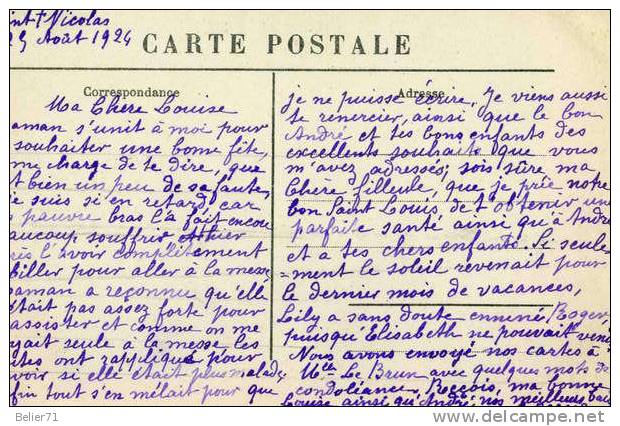 int Nicolas
25 Août 1924
CARTE POSTALE
Correspondance
Ma Chère Louise
aman s'unit à moi pour
souhaiter une bonne fête,
me charge de te dire, que
t bien un peu de sa faute,
je suis si en retard, car
pauvre bras l'a fait encore
aucoup souffrir hier
rès l'avoir complètement
biller pour aller à la messe
aman a reconnu qu'elle
était pas assez forte pour
assister et comme on me
yait seule à la messe les
tes ont rappliqué pour
voir si elle était plus malade,
fin tout s'en mêlait pour que
Adresse
je ne puisse écrire. Je viens aussi
te remercier, ainsi que le bon
André et tes bons enfants des
excellents souhaits que vous
m'avez adressés; sois sûre ma
Chère filleule, que je prie notre
bon Saint Louis, de t'obtenir une
parfaite santé ainsi qu'à André
et à tes chers enfants. Si seule-
=ment le soleil revenait pour
le dernier mois de vacances,
Lily a sans doute emmené, Roger,
puisqu'Elisabeth ne pouvait veni
Nous avons envoyé nos cartes à
Mlle Le Brun avec quelques mots de
condoléance. Reçois, ma bonne
Louise ainsi qu'André nos meilleurs bai
Belier71
http://www.delcampe.net